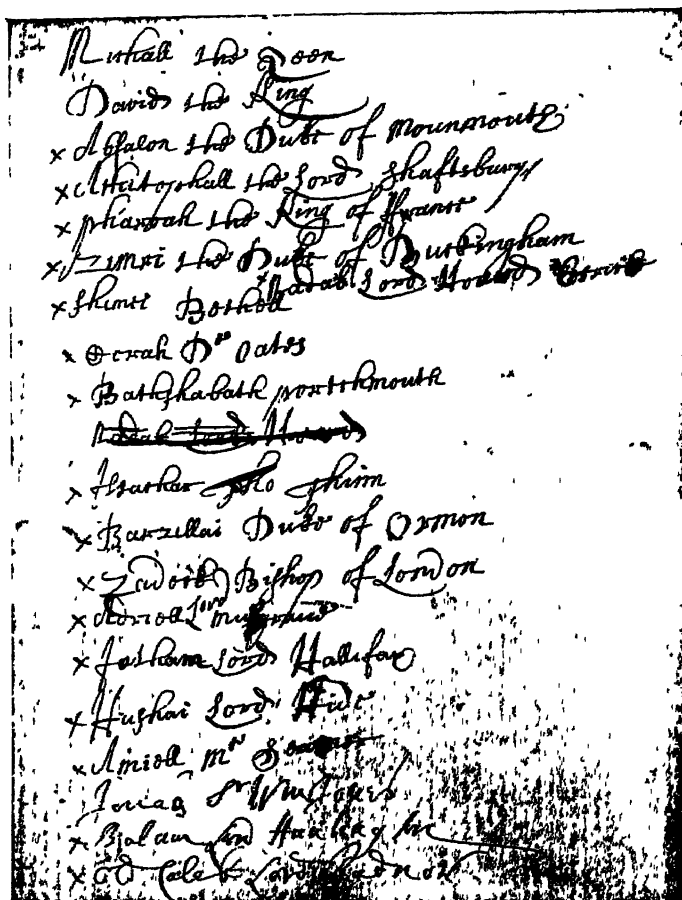 Michall the Qeen
David the King
x Absalon the Duke of Mounmouth
x Achitophall the Lord Shaftsbury
x pharoah the King of ffrance
x Zimri the Duke of Buckingham
x Nadab Lord Howard
x Shimei Bethell
x Corah Dr Oates
x Bathshabath portchmouth
Nadab Lord Howard
x Issachar Tho Thinn
x Barzillai Duke of Ormon
x Zadock Bishop of London
x Adriell Lord
x Jotham Lord Hallifax
x Hushai Lord Hide
x Amiell Mr
Jonas Sr Wm Jones
x Balam Lord
x Cold Caleb Lord